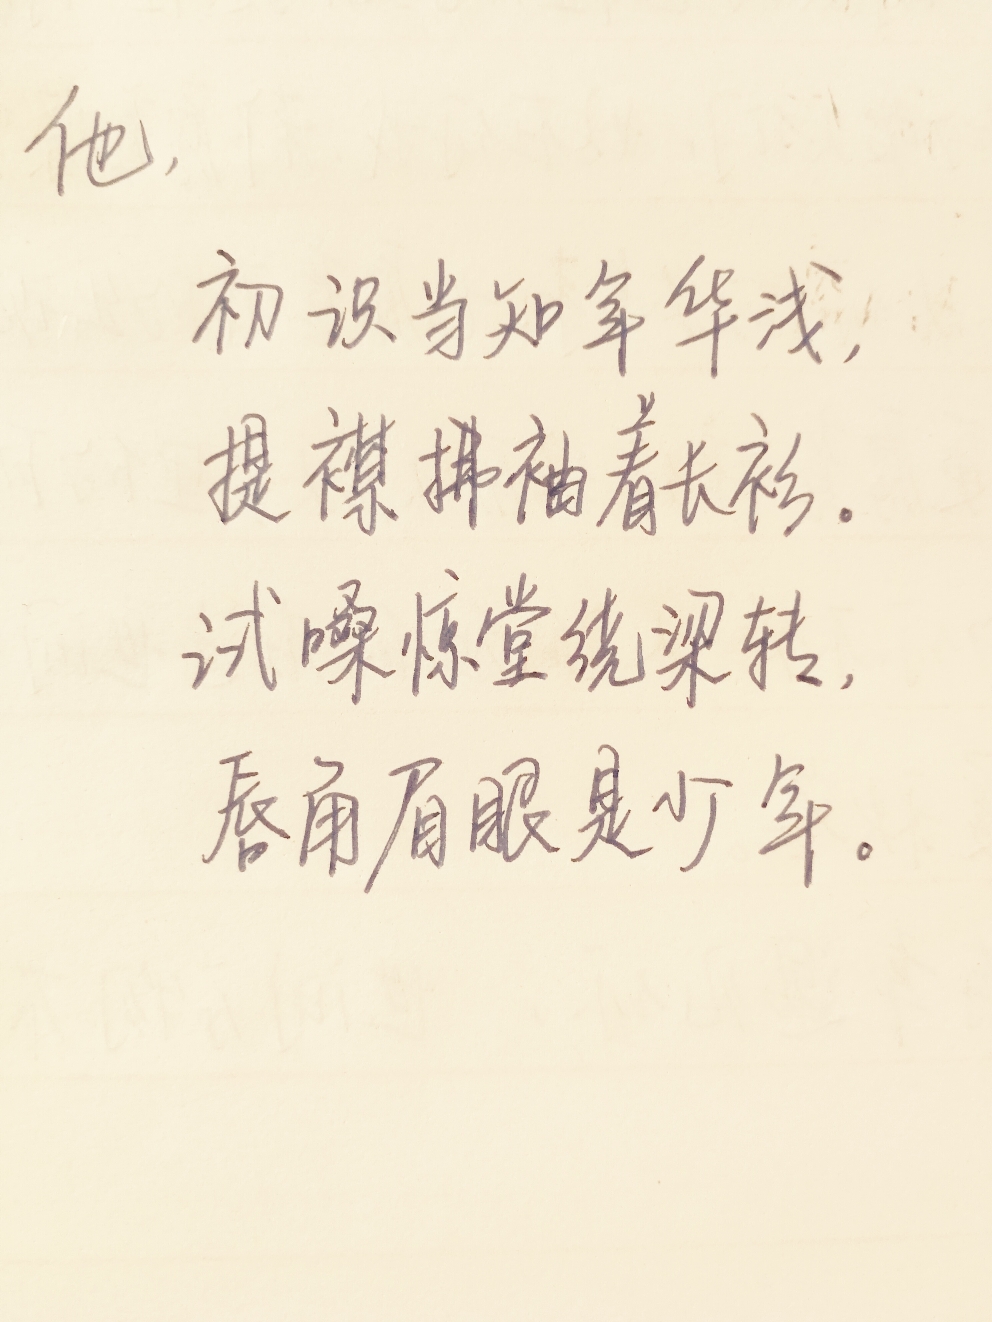 他,
初识当知年华浅,
提襟拂袖着长衫。
试嗓惊堂绕梁转,
唇角眉眼是少年。